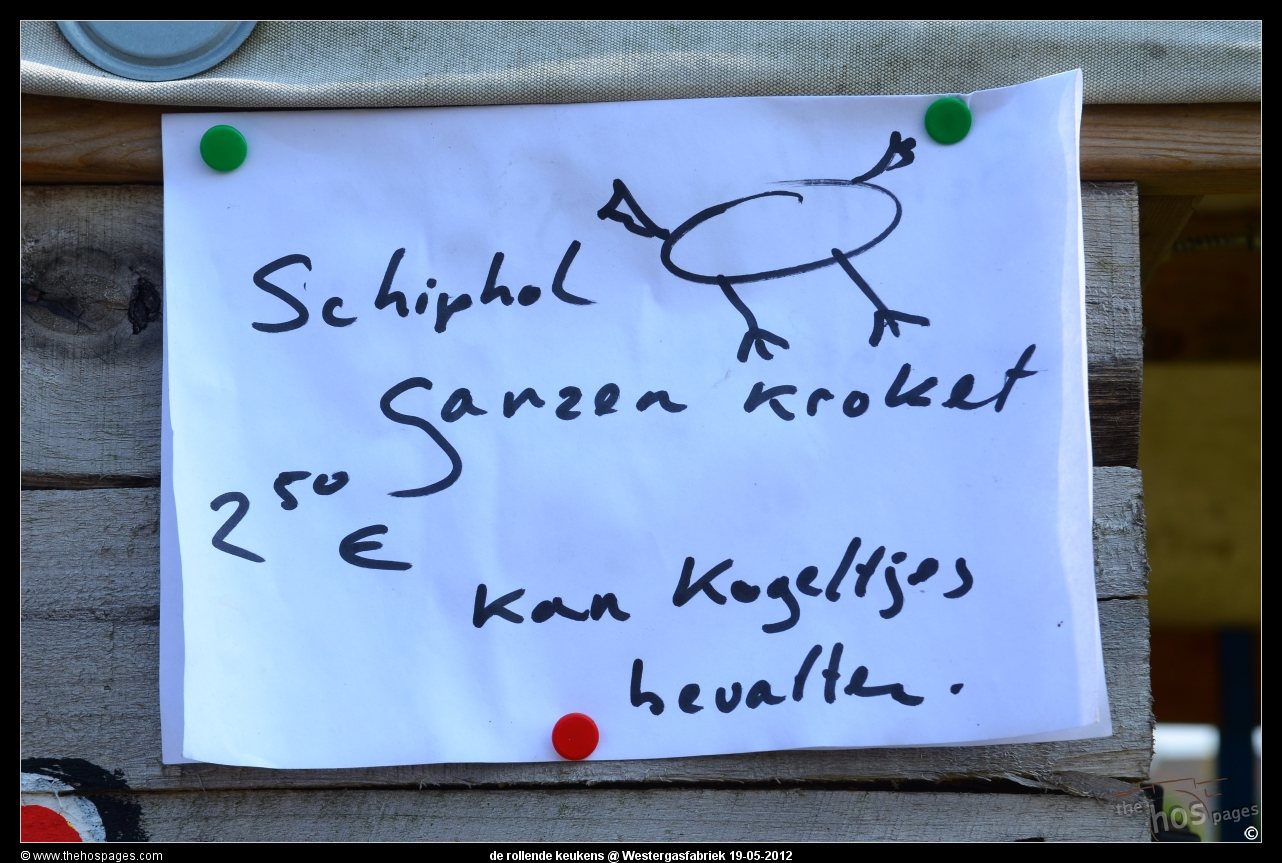 Schiphol
ganzen kroket
2 50 €
kan Kogeltjes
bevatten.
the hos pages
©
© www.thehospages.com
de rollende keukens @ Westergasfabriek 19-05-2012